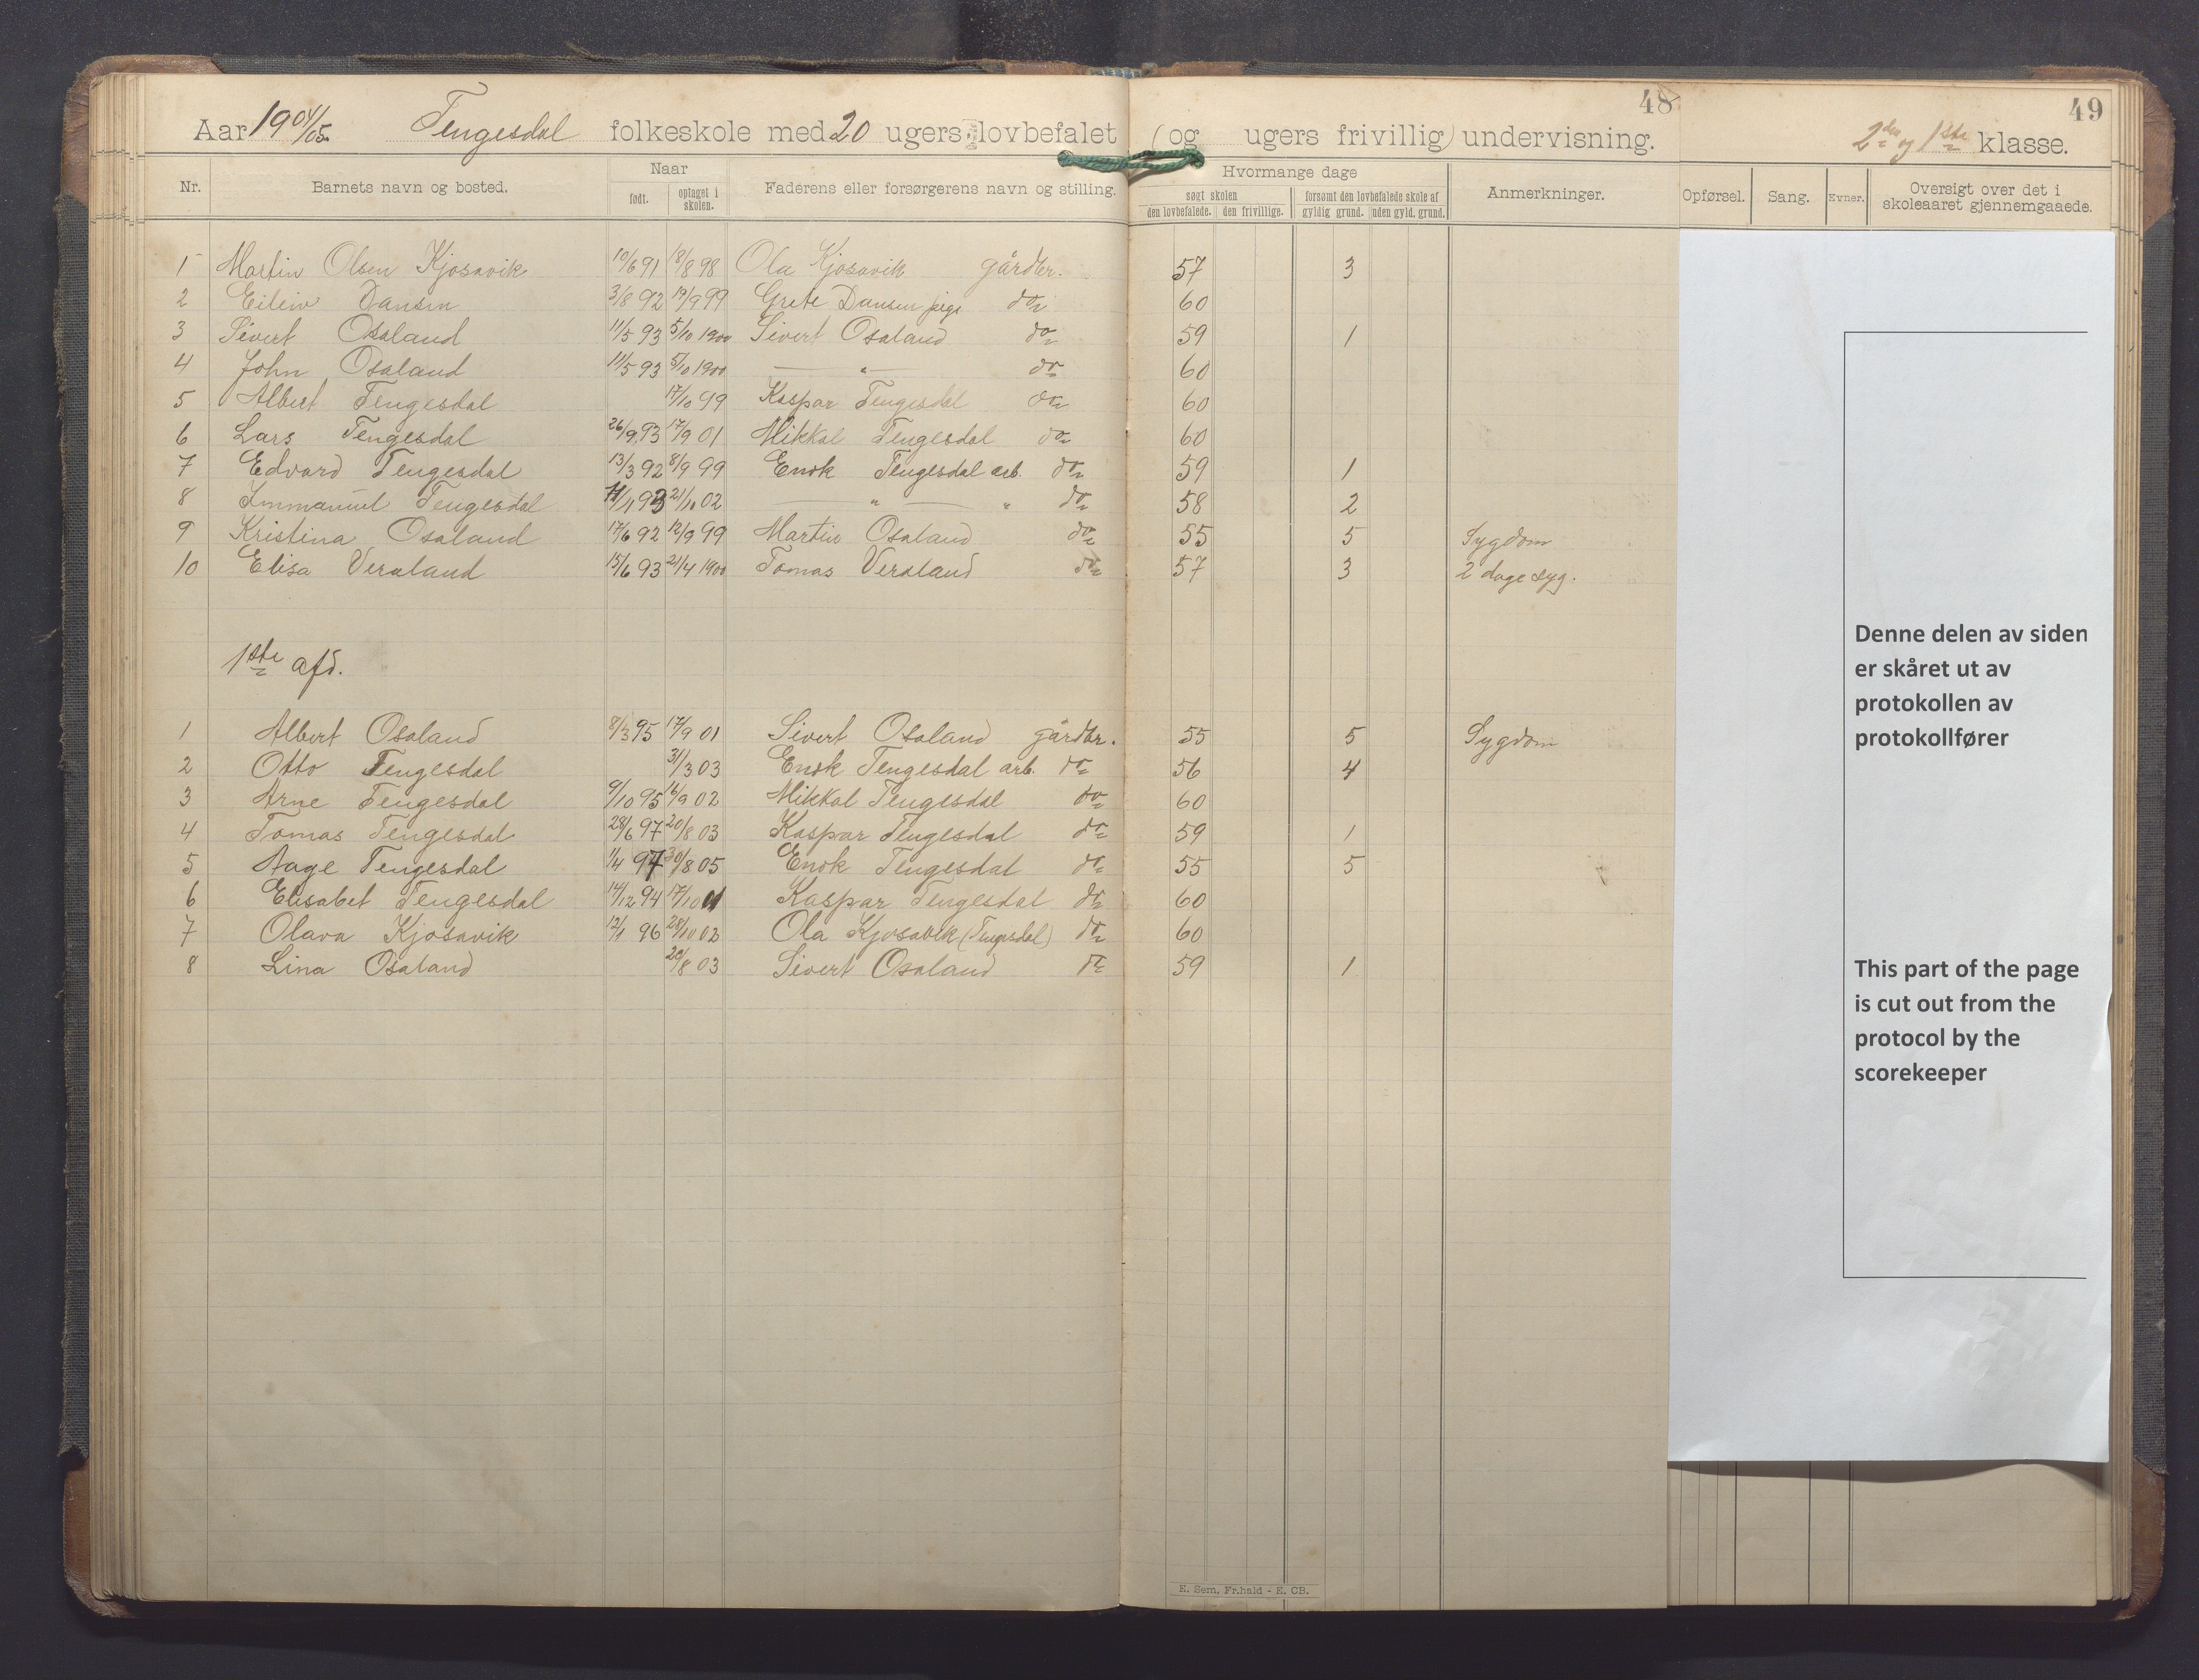 48
49
Aar 1904/05. Tengesdal folkeskole med 20 ugers lovbefalet (og ugers frivillig) undervisning. 2den og 1ste klasse.
Nr. Barnets navn og bosted. Naar født. optaget i skolen. Faderens eller forsørgerens navn og stilling. Hvormange dage søgt skolen den lovbefalede. den frivillige. forsømt den lovbefalede skole af gyldig grund. uden gyld. grund. Anmerkninger. Opførsel. Sang. Evner. Oversigt over det i skoleaaret gjennemgaaede.
1 Martin Olsen Kjosavik 10/6 91 18/8 98 Ola Kjosavik gårdbr. 57 3
2 Eileiv Dansen 3/8 92 19/9 99 Grete Dansen pige do 60
3 Sivert Osaland 11/5 93 5/10 1900 Sivert Osaland do 59 1
4 John Osaland 11/5 93 5/10 1900 — " — do 60
5 Albert Tengesdal 17/10 99 Kaspar Tengesdal do 60
6 Lars Tengesdal 26/9 93 17/9 01 Mikkal Tengesdal do 60
7 Edvard Tengesdal 13/3 92 8/9 99 Enok Tengesdal arb. do 59 1
8 Immanuel Tengesdal 93 21/10 02 — " — " do 58 2
9 Kristina Osaland 17/6 92 12/9 99 Martin Osaland do 55 5 Sygdom
10 Elisa Veraland 15/6 93 21/4 1900 Tomas Veraland do 57 3 2 dage syg.
1ste afd.
1 Albert Osaland 8/3 95 17/9 01 Sivert Osaland gårdbr. 55 5 Sygdom
2 Otto Tengesdal 31/3 03 Enok Tengesdal arb. do 56 4
3 Arne Tengesdal 9/10 95 16/9 02 Mikkal Tengesdal do 60
4 Tomas Tengesdal 28/6 97 20/8 03 Kaspar Tengesdal do 59 1
5 Aage Tengesdal 1/4 97 30/8 05 Enok Tengesdal do 55 5
6 Elisabet Tengesdal 14/12 94 17/10 01 Kaspar Tengesdal do 60
7 Olava Kjosavik 12/1 96 28/10 02 Ola Kjosavik (Tengesdal) do 60
8 Lina Osaland 20/8 03 Sivert Osaland do 59 1
Denne delen av siden
er skåret ut av
protokollen av
protokollfører
This part of the page
is cut out from the
protocol by the
scorekeeper
E. Sem, Fr.hald - E. CB.